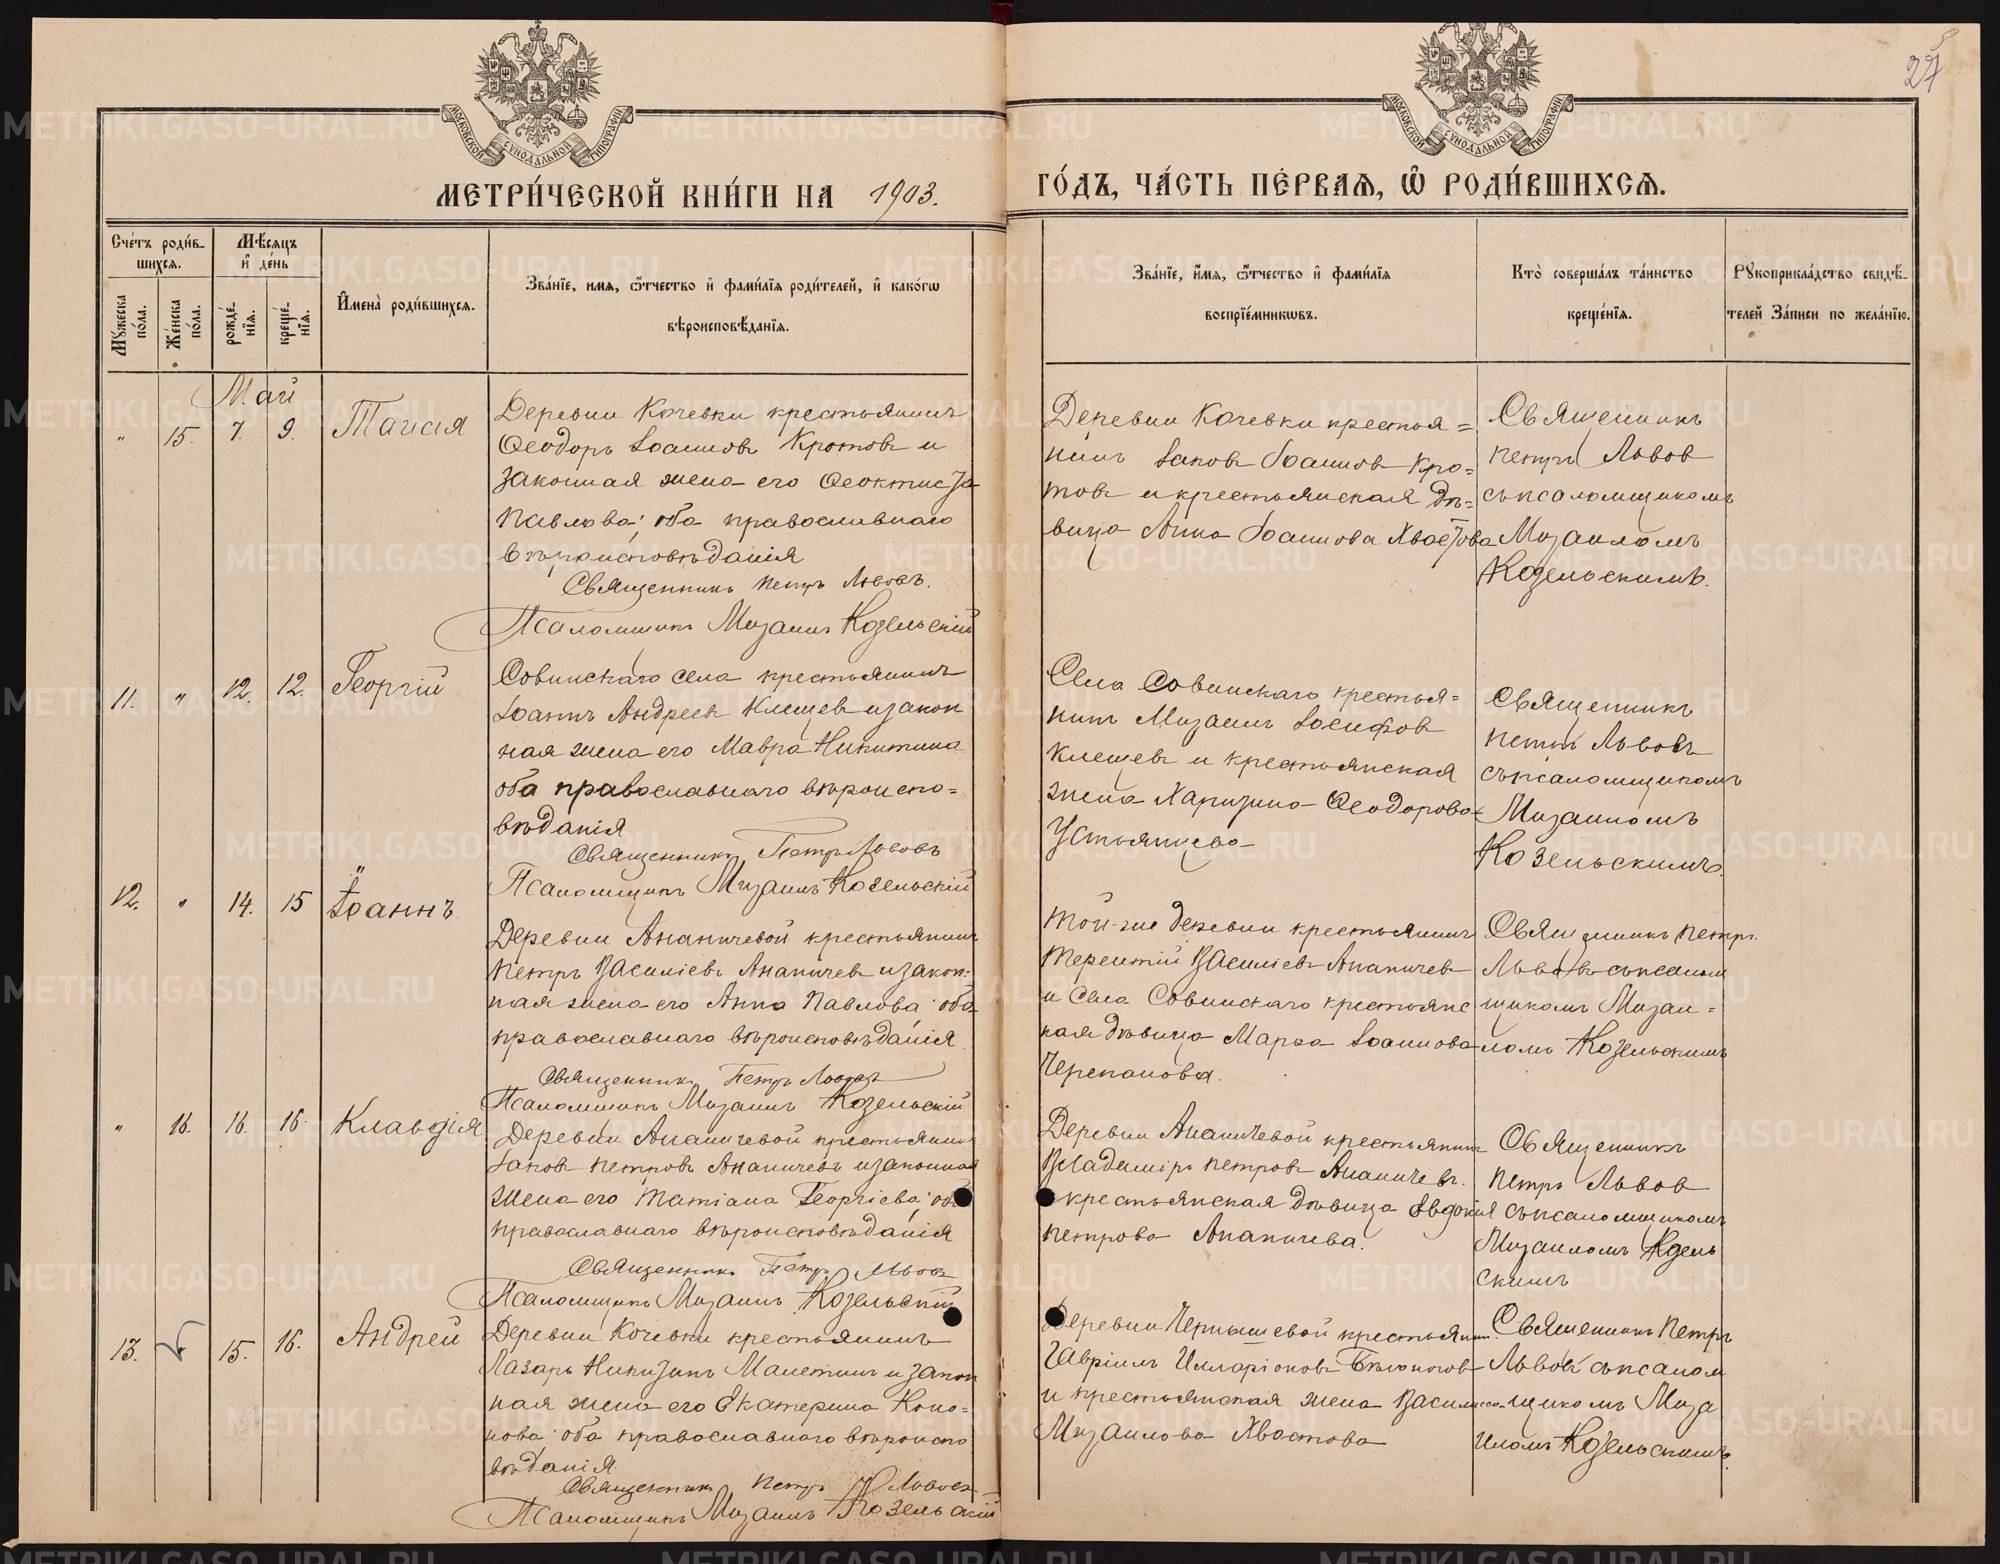 27
МОСКОВСКОЙ СѴНОДАЛЬНОЙ ТИПОГРАФІИ
МОСКОВСКОЙ СѴНОДАЛЬНОЙ ТИПОГРАФІИ
МЕТРИ́ЧЕСКОЙ КНИ́ГИ НА 1903.
ГО́ДЪ, ЧА́СТЬ ПЕ́РВАЯ, Ѡ РОДИ́ВШИХСЯ.
Сче́тъ роди́в-
шихся.
Мѣсяцъ
и де́нь
Мꙋжеска по́ла.
Же́нска по́ла.
рожде́-
нїя.
креще́-
нїя.
Имена̀ роди́вшихся.
Зва́нїе, имя, ѻтчество и фами́лїя роди́телей, и како́гѡ
вѣроисповѣданїя.
Зва́нїе, имя, ѻтчество и фами́лїя
воспрїе́мникѡвъ.
Кто̀ соверша́лъ та́инство
креще́нїя.
Рꙋкоприкла́дство свидѣ-
телей За́писи по жела́нїю.
Май
" 15. 7. 9. Таисія
Деревни Кочевки крестьянинъ
Ѳеодоръ Іоанновъ Кротовъ и
законная жена его Ѳеоктиста
Павлова; оба православнаго
вѣроисповѣданія
Священникъ Петръ Львовъ.
Псаломщикъ Михаилъ Козельскій
Деревни Кочевки крестья=
нинъ Іаковъ Іоанновъ Кро=
товъ и крестьянская дѣ=
вица Анна Іоаннова Хвостова
Священникъ
Петръ Львовъ
съ псаломщикомъ
Михаиломъ
Козельскимъ.
11. " 12. 12. Георгій
Совинскаго села крестьянинъ
Іоаннъ Андреевъ Клещевъ и закон
ная жена его Мавра Никитина
оба православнаго вѣроиспо=
вѣданія
Священникъ Петръ Львовъ
Псаломщикъ Михаилъ Козельскій
Села Совинскаго крестья=
нинъ Михаилъ Іосифовъ
Клещевъ и крестьянская
жена Харитина Ѳеодорова
Устьянцева
Священникъ
Петръ Львовъ
съ псаломщикомъ
Михаиломъ
Козельскимъ.
12. " 14. 15 Іоаннъ
Деревни Ананичевой крестьянинъ
Петръ Василіевъ Ананичевъ и закон-
ная жена его Анна Павлова; оба
православнаго вѣроисповѣданія
Священникъ Петръ Львовъ
Псаломщикъ Михаилъ Козельскій
Той-же деревни крестьянинъ
Терентій Василіевъ Ананичевъ
и села Совинскаго крестьянс
кая дѣвица Марѳа Іоаннова
Черепанова.
Священникъ Петръ
Львовъ съ псалом
щикомъ Михаи=
ломъ Козельскимъ
" 16. 16. 16. Клавдія
Деревни Ананичевой крестьянинъ
Іаковъ Петровъ Ананичевъ и законная
жена его Татіана Георгіева; оба
православнаго вѣроисповѣданія
Священникъ Петръ Львовъ
Псаломщикъ Михаилъ Козельскій
Деревни Ананичевой крестьянинъ
Владиміръ Петровъ Ананичевъ.
крестьянская дѣвица Евдокія
Петрова Ананичева.
Священникъ
Петръ Львовъ
съ псаломщикомъ
Михаиломъ Козель
скимъ
13. 15. 16. Андрей
Деревни Кочевки крестьянинъ
Лазарь Никитинъ Малетинъ и закон
ная жена его Екатерина Коно=
нова; оба православнаго вѣроиспо
вѣданія
Священникъ Петръ Львовъ
Псаломщикъ Михаилъ Козельскій
Деревни Чернышевой крестьянин.
Гавріилъ Илларіоновъ Бѣлоноговъ
и крестьянская жена Василисса
Михаилова Хвостова
Священникъ Петръ
Львовъ съ псалом
щикомъ Миха
иломъ Козельскимъ.
METRIKI.GASO-URAL.RU